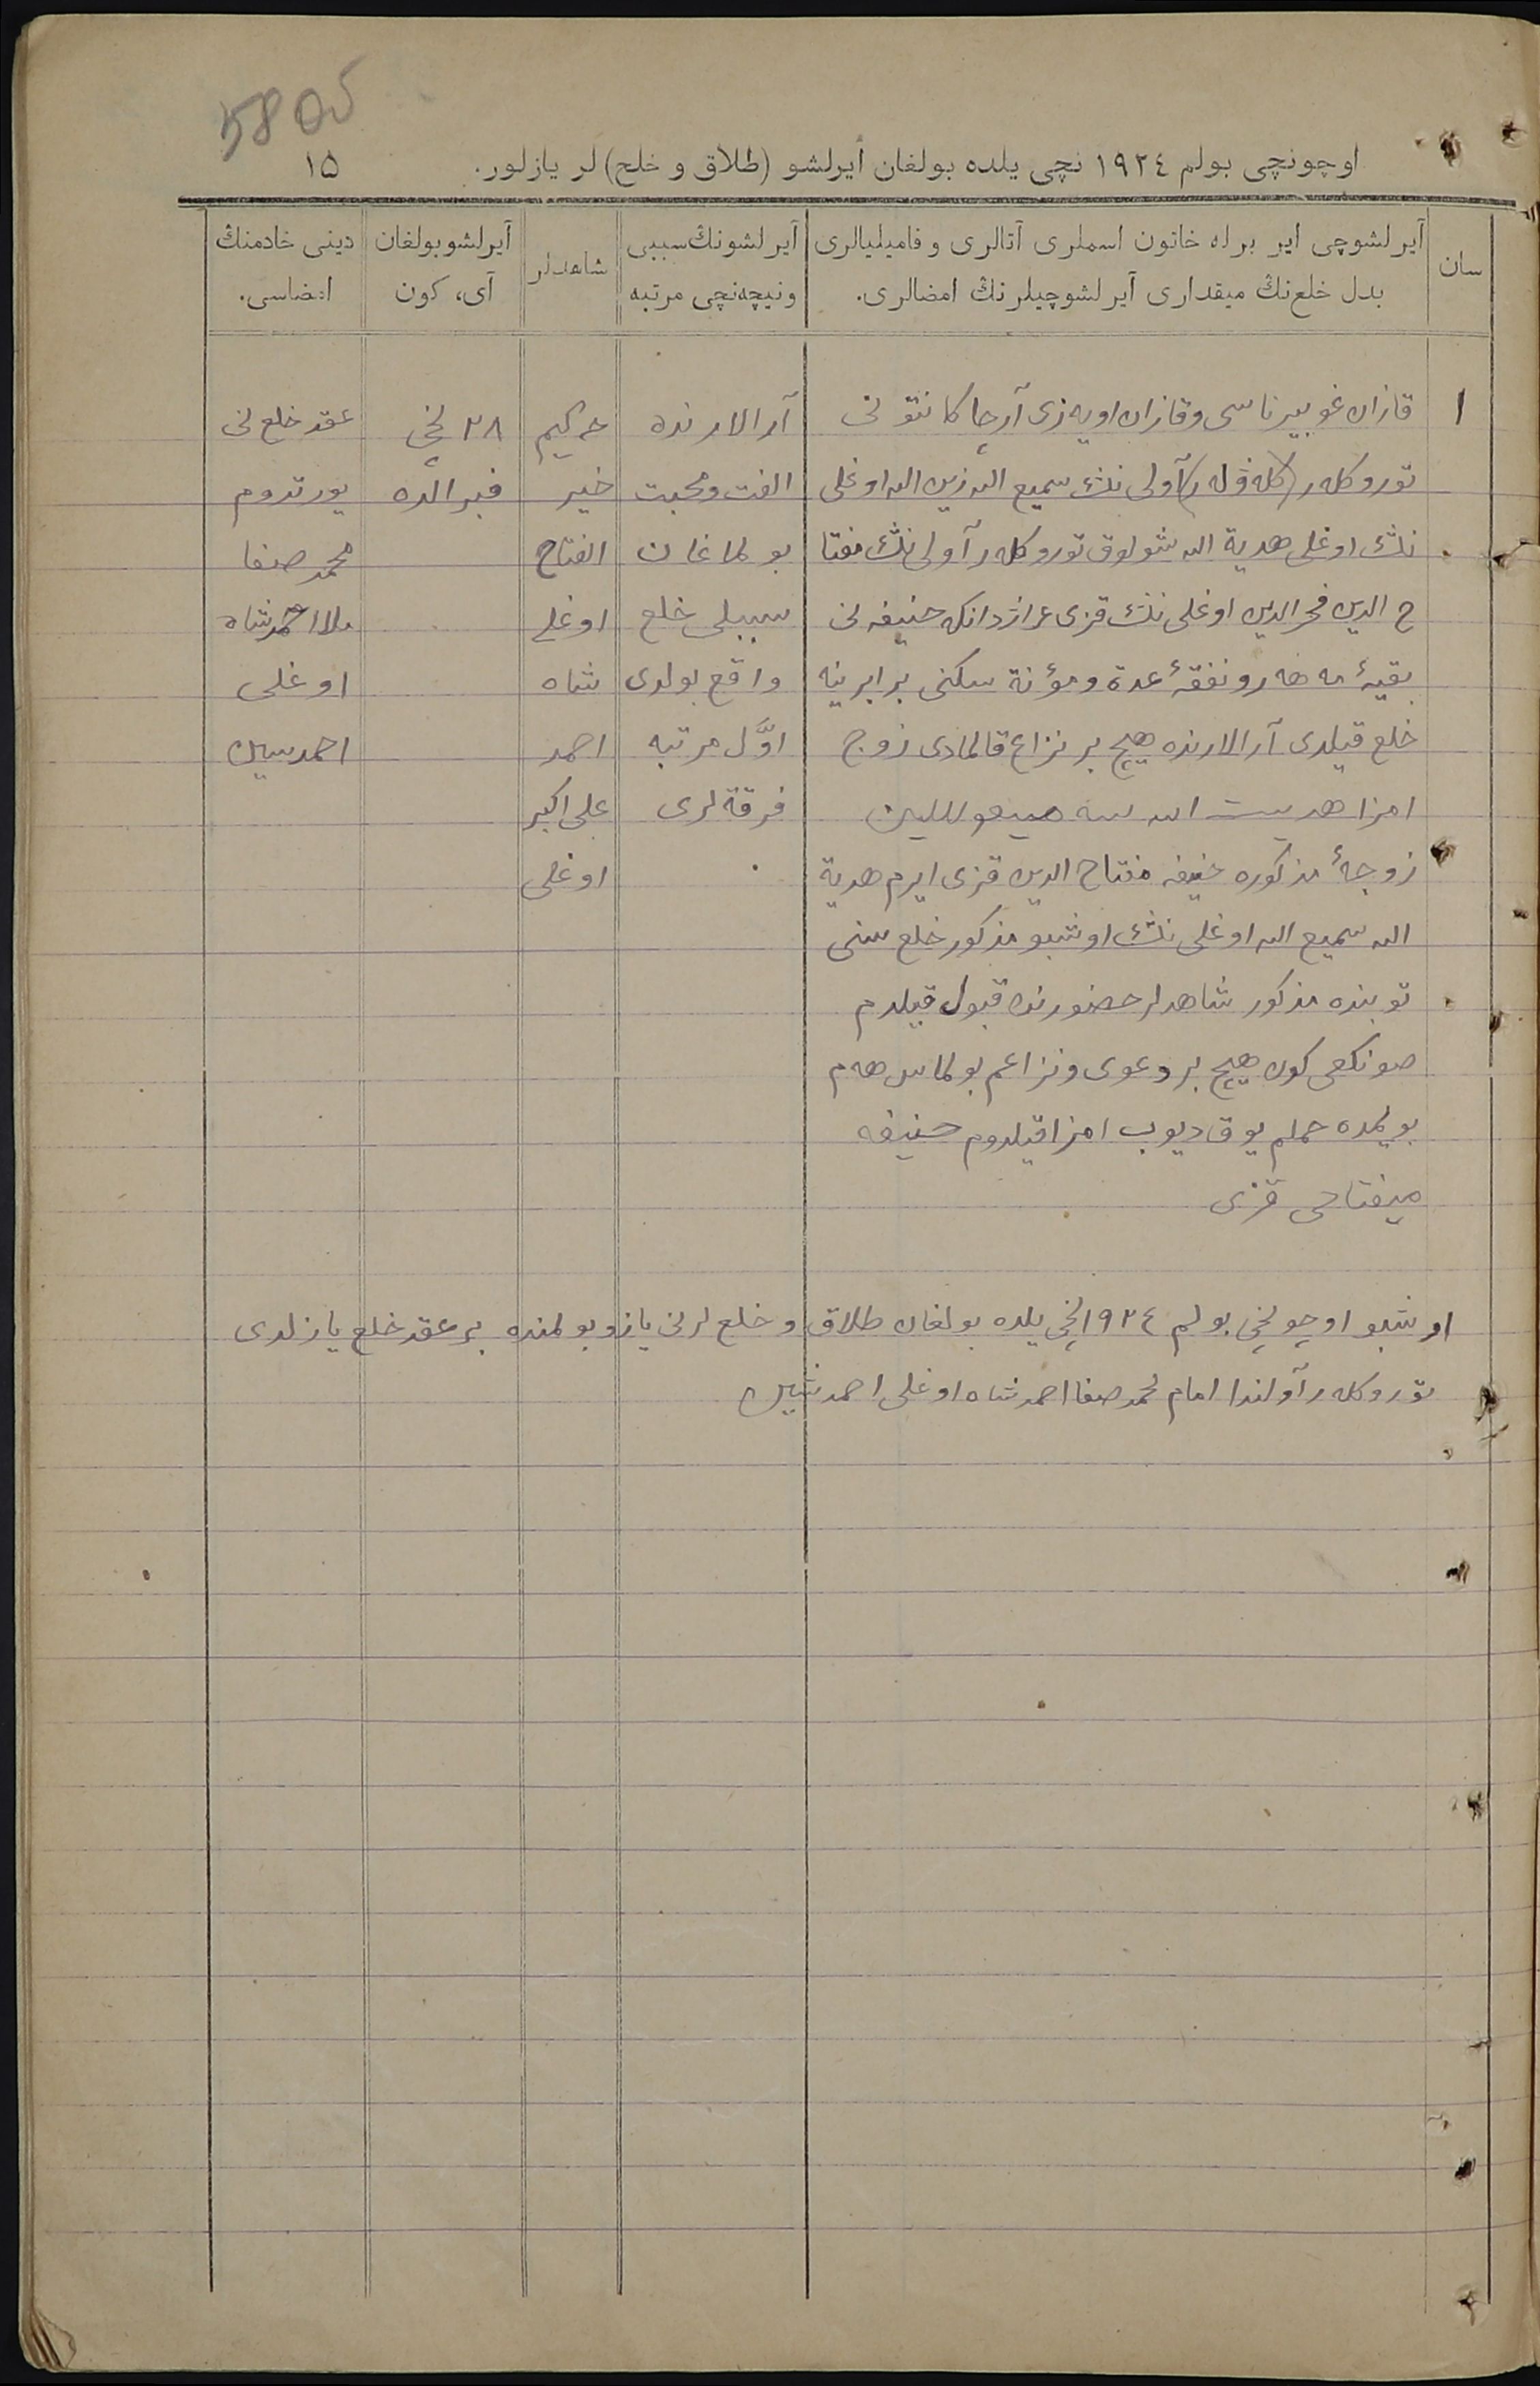 580б
اوچونچی بولم ١٩٢٤ نچی یلده بولغان آیرلشو (طلاق و خلع) لر یازلور.
١۵
سان
آیرلشوچی ایر برله خاتون اسملری آتالری و فامیلیالری
بدل خلع‌نڭ میقداری آیرلشوچیلرنڭ امضالری.
آیرلشونڭ سببی
ونیچه‌نچی مرتبه
شاهدلر
آیرلشو بولغان
آی، كون
دینی خادمنڭ
امضاسی.
١
قازان غوبیرناسی وقازان اویه‌زی آرچا كانتونی
توروكله‌ر (كله‌ڤله‌ر) آولی نڭ سمیع الله زین الله اوغلی
نڭ اوغلی هدیة الله شولوق توروكله‌ر آولی نڭ مفتا
ح الدین فخر الدین اوغلی نڭ قزی حنیفه نی
بقیهٔ مه‌هه‌ر و نفقهٔ عدة و مؤنة سكنی برابرینه
خلع قیلدی آرالارنده هیچ بر نزاع قالمادی زوج
امزا هدیت الله
زوجهٔ مذكوره حنیفه مفتاح الدین قزی ایرم هدیة
الله سمیع الله اوغلی نڭ اوشبو مذكور خلع سنی
توبنده مذكور شاهدلر حضورنده قبول قیلدم
صونكغی كون هیچ بر دعوی ونزاعم بولماس هه‌م
بویمده حملم یوق دیوب امزا قیلدوم حنیفه
میفتاحی قزی
آرالارنده
الفت ومحبت
بولماغان
سببلی خلع
واقع بولدی
اوّل مرتبه
فرقة لری
حكیم
خیر
الفتاح
اوغلی
شاه
احمد
علی اكبر
اوغلی
٢٨ نچی
فیرالده
عقد خلع نی
یورتدوم
محمد صفا
ملا احمدشاه
اوغلی
احمدسین
اوشبو اوچونچی بولم ١٩٢٤ نچی یلده بولغان طلاق و خلع لرنی یازو بولمنده بر عقد خلع یازلدی
توروكله‌ر آولندا امام محمد صفا احمدشاه اوغلی احمدشین